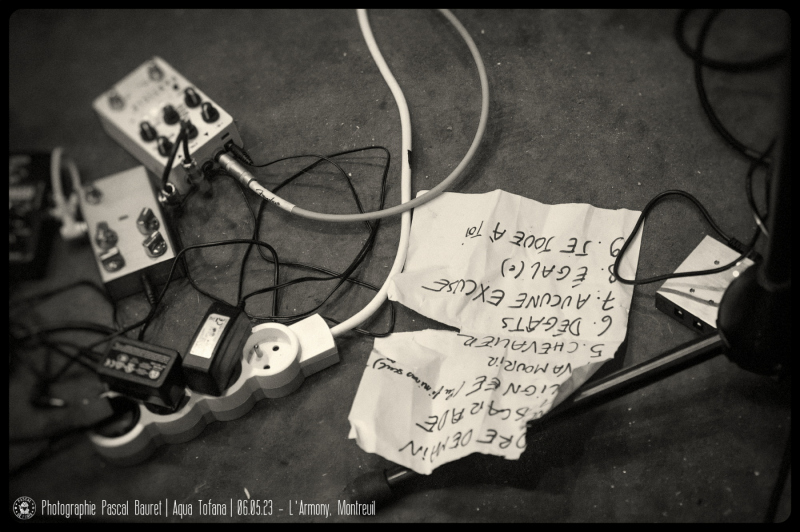 ORE DEMIN
SCARADE
LIGNÉE
VA MOURIR
5. CHEVALIER
6. DÉGATS
7. AUCUNE EXCUSE
8. ÉGAL(e)
9. JE JOUE À TOI
Photographie Pascal Bauret | Aqua Tofana | 06.05.23 - L'Armony, Montreuil